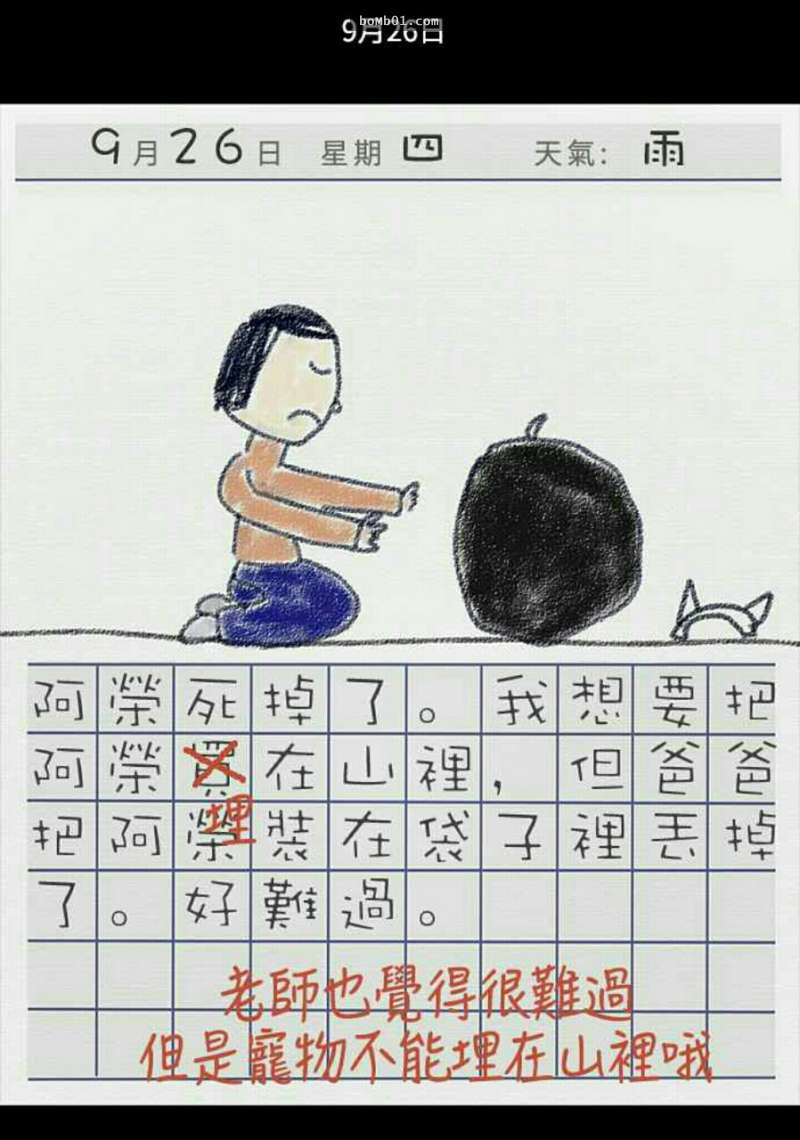 boMb01.com
9月26日
9月26日 星期四 天氣: 雨
阿榮死掉了。我想要把
阿榮買在山裡,但爸爸
埋
把阿榮裝在袋子裡丟掉
了。好難過。
老師也覺得很難過
但是寵物不能埋在山裡哦